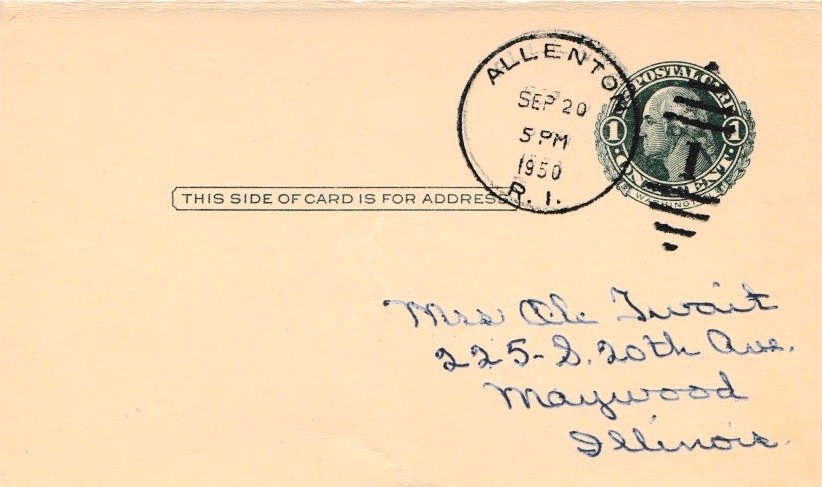 ALLENTON
SEP 20
5 PM
1950
R. I.
POSTAL CARD
1 1
ONE CENT
WASHINGTON
1
THIS SIDE OF CARD IS FOR ADDRESS
Mrs Ole Twait
225 - S. 20th Ave.
Maywood
Illinois.